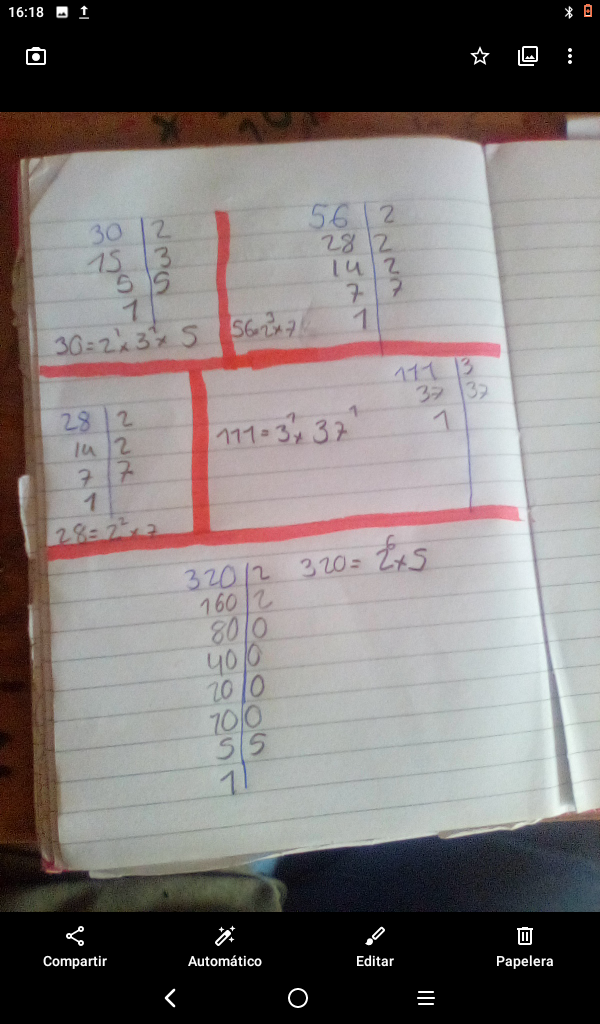 16:18
30 | 2
15 | 3
5 | 5
1
30=2¹x 3¹x 5
56 | 2
28 | 2
14 | 2
7 | 7
1
56=2³x7
28 | 2
14 | 2
7 | 7
1
28=2²x7
111 | 3
37 | 37
1
111=3¹x 37¹
320 | 2
160 | 2
80 | 0
40 | 0
20 | 0
10 | 0
5 | 5
1
320= 2⁶x5
Compartir
Automático
Editar
Papelera